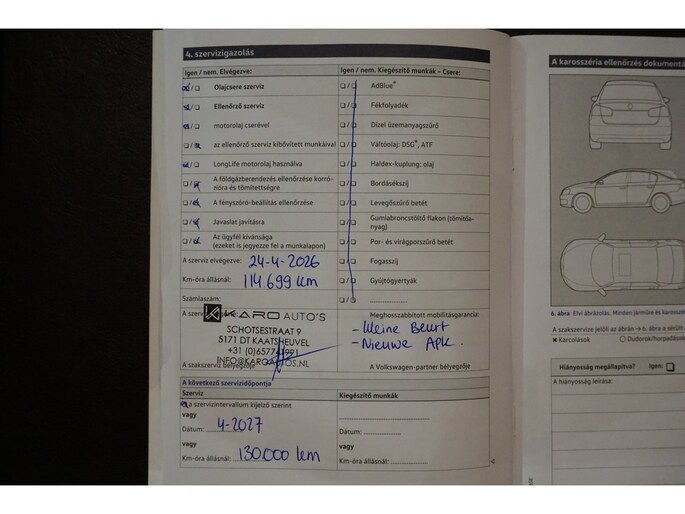 4. szervizigazolás
Igen / nem. Elvégezve:
Igen / nem. Kiegészítő munkák – Csere:
Olajcsere szerviz
AdBlue®
Ellenőrző szerviz
Fékfolyadék
motorolaj cserével
Dízel üzemanyagszűrő
az ellenőrző szerviz kibővített munkáival
Váltóolaj: DSG®, ATF
LongLife motorolaj használva
Haldex-kuplung: olaj
A földgázberendezés ellenőrzése korró-
zióra és tömítettségre
Bordásékszíj
A fényszóró-beállítás ellenőrzése
Levegőszűrő betét
Javaslat javításra
Gumiabroncstöltő flakon (tömítőa-
nyag)
Az ügyfél kívánsága
(ezeket is jegyezze fel a munkalapon)
Por- és virágporszűrő betét
A szerviz elvégezve: 24-4-2026
Fogasszíj
Km-óra állásnál: 114.699 km
Gyújtógyertyák
Számlaszám:
KARO AUTO'S
SCHOTSESTRAAT 9
5171 DT KAATSHEUVEL
INFO@KAROAUTOS.NL
A szakszerviz bélyegzője
Meghosszabbított mobilitásgarancia:
- Kleine Beurt
- Nieuwe Apk.
A Volkswagen-partner bélyegzője
A következő szervizidőpontja
Szerviz
Kiegészítő munkák
a szervizintervallum kijelző szerint
vagy
Dátum: 4-2027
Dátum:
vagy
vagy
Km-óra állásnál: 130.000 km
Km-óra állásnál:
A karosszéria ellenőrzés dokumentá
6. ábra Elvi ábrázolás. Minden járműre és karossz
A szakszerviz jelöli az ábrán → 6. ábra a sérült
Karcolások
Dudorok/horpadások
Hiányosság megállapítva? Igen:
A hiányosság leírása: